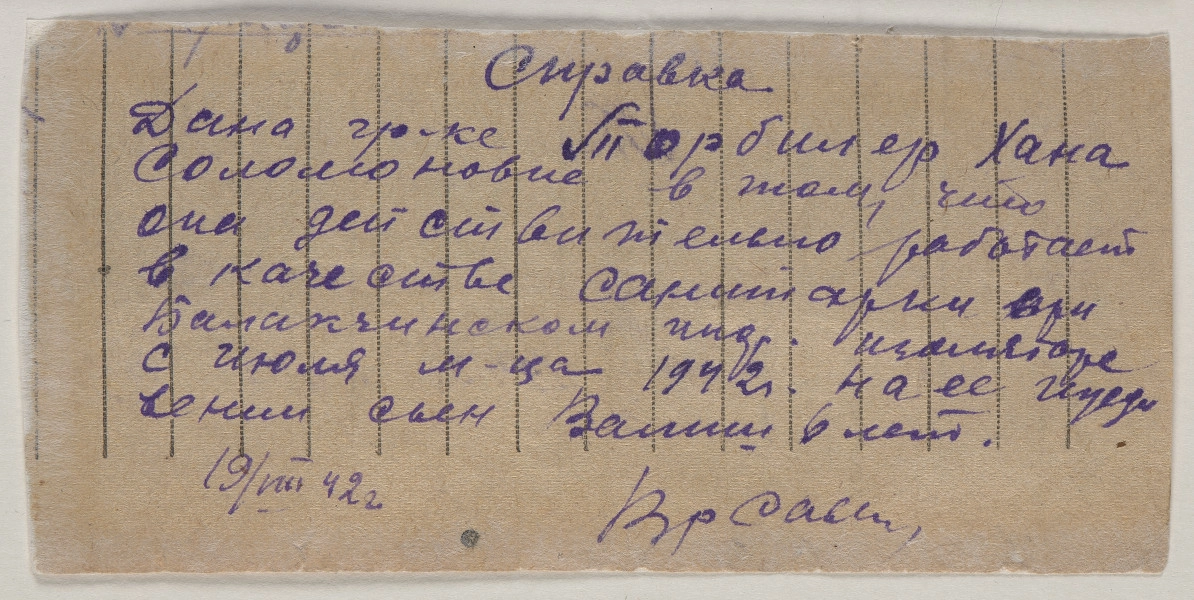 Справка
Дана гр-ке Торбилер Хана
Соломоновне в том, что
она действительно работает
в качестве санитарки при
Балахчинском изоляторе
с июля м-ца 1942г. на ее ижди
вении сын 6 лет.
19/VIII 42г
Вр